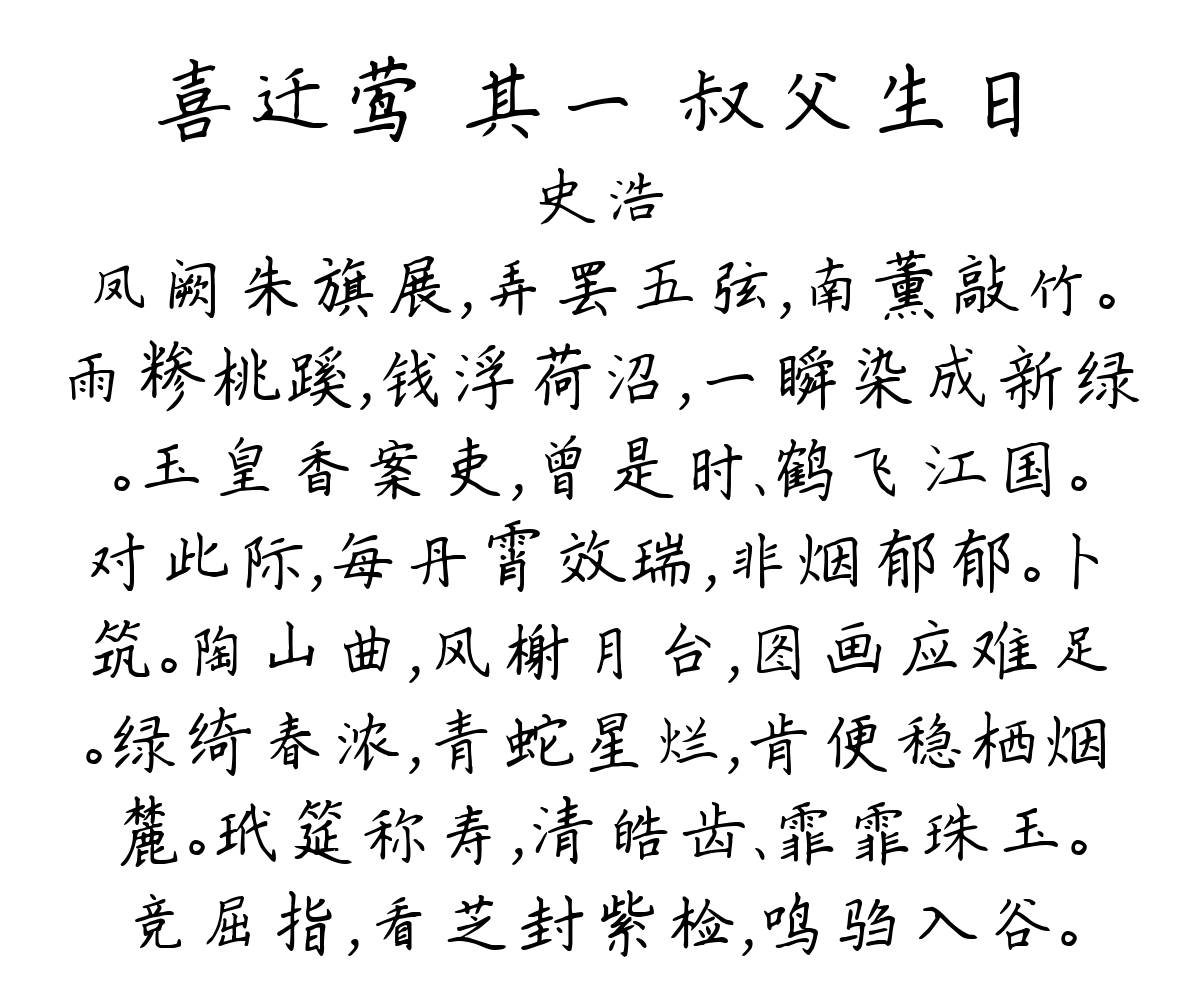 喜迁莺 其一 叔父生日
史浩
凤阙朱旗展,弄罢五弦,南薰敲竹。
雨糁桃蹊,钱浮荷沼,一瞬染成新绿
。玉皇香案吏,曾是时、鹤飞江国。
对此际,每丹霄效瑞,非烟郁郁。卜
筑。陶山曲,风榭月台,图画应难足
。绿绮春浓,青蛇星烂,肯便稳栖烟
麓。玳筵称寿,清皓齿、霏霏珠玉。
竞屈指,看芝封紫检,鸣驺入谷。